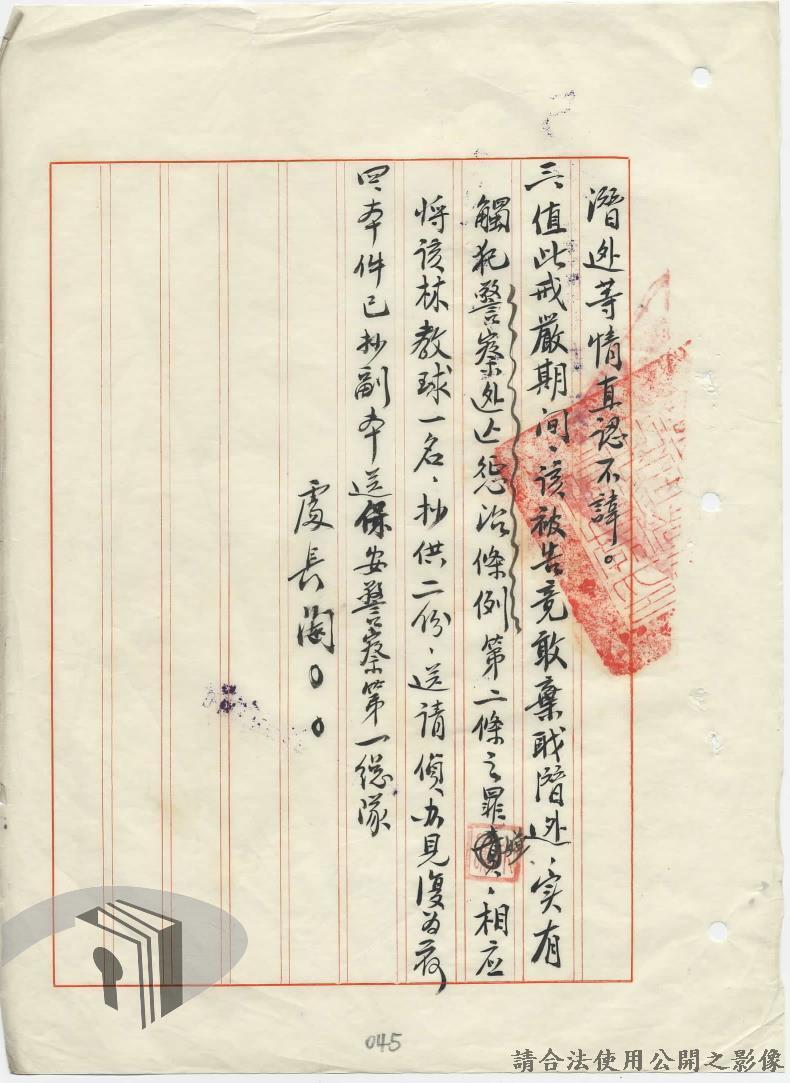 潛逃等情直認不諱。
三、值此戒嚴期间、该被告竟敢棄職潛逃、实有
觸犯警察逃亡惩治條例第二條之罪嫌、相应
将该林教球一名、抄供二份、送请偵办見復为荷
四、本件已抄副本送保安警察第一總隊
處長陶〇〇
045
請合法使用公開之影像